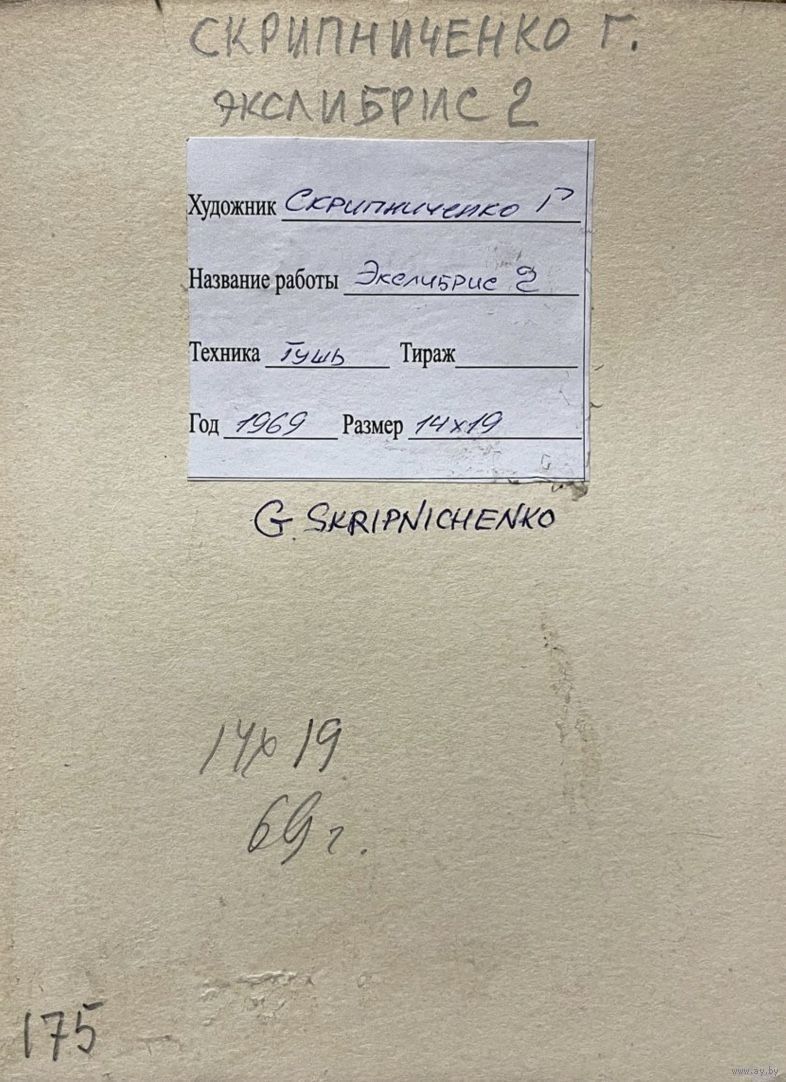 СКРИПНИЧЕНКО Г.
ЭКСЛИБРИС 2
Художник Скрипниченко Г
Название работы Экслибрис 2
Техника Тушь Тираж
Год 1969 Размер 14х19
G. SKRIPNICHENKO
14х19
69 г.
175
www.ay.by